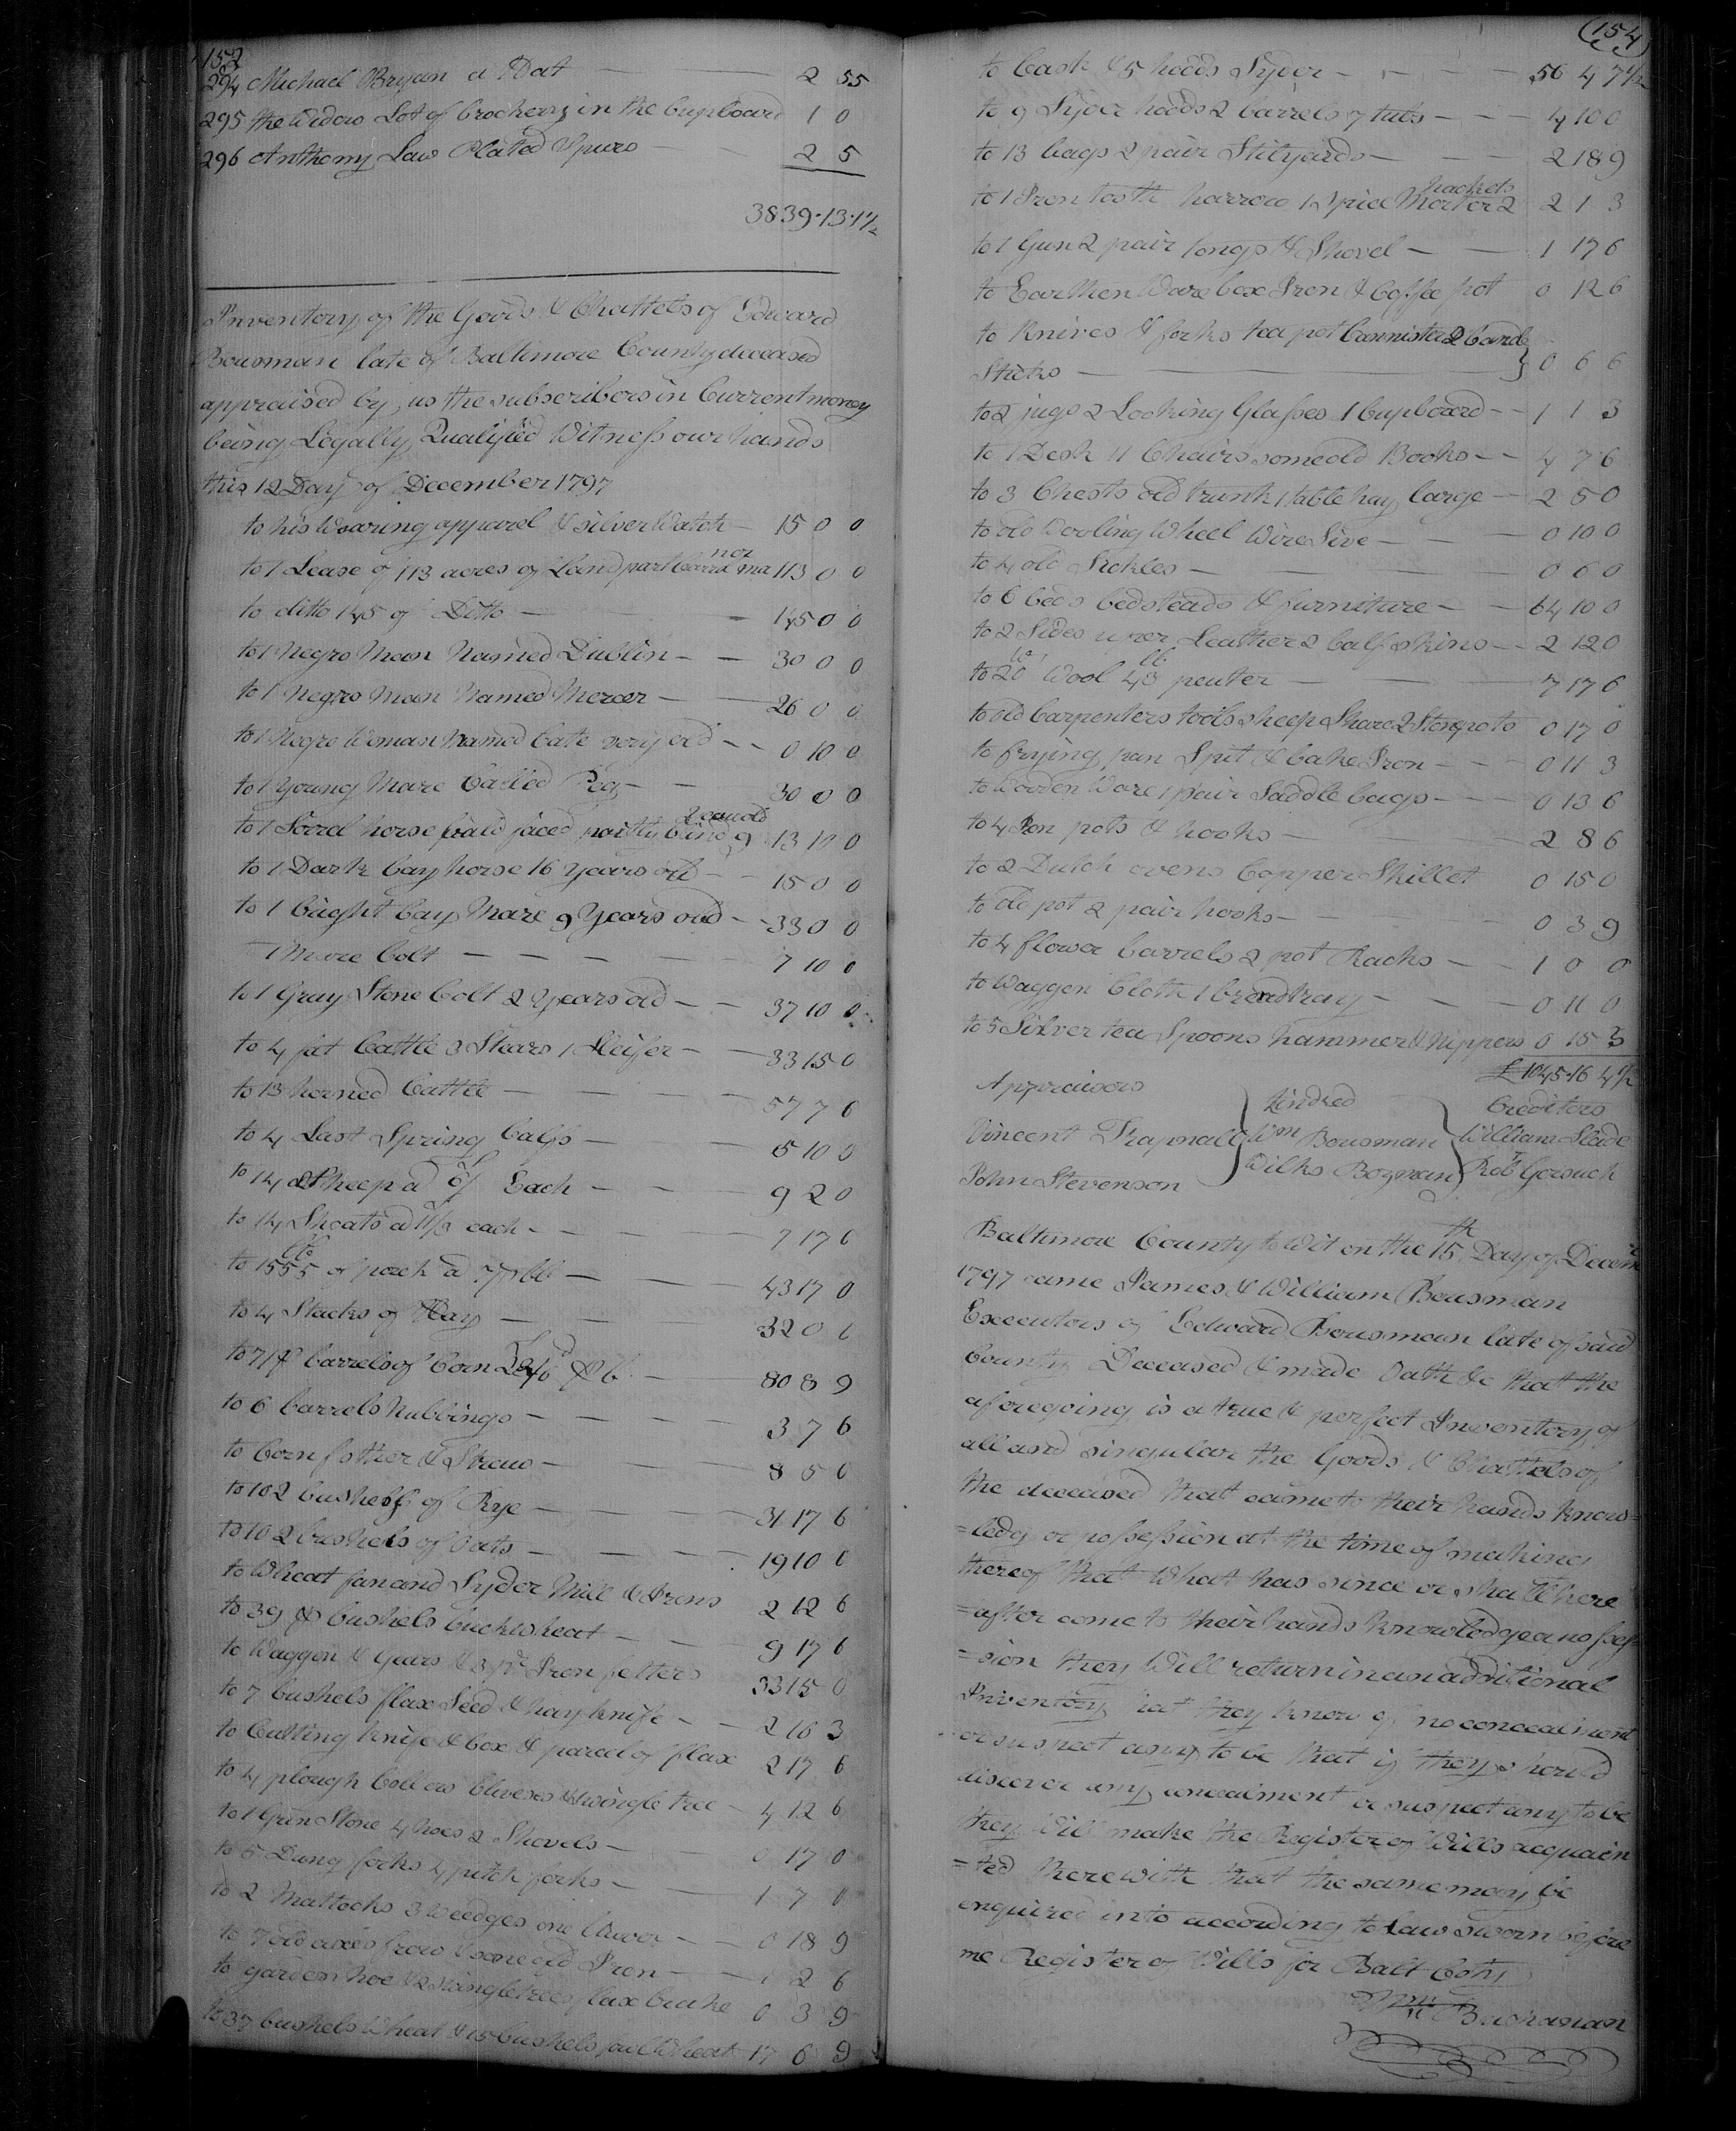 152
294 Michael Bryan a Hat — 2 55
295 the Widow Lot of Crockery in the Cupboard 1 0
296 Anthony Law Plated Spurs — 2 5
3839.13.1½
Inventory of the Goods & Chattels of Edward
Bousman late of Baltimore County deceased
appraised by us the subscribers in Current money
being Legally Qualified Witness our hands
this 12 Day of December 1797
to his Wearing apparel & silver Watch — 15 0 0
to 1 Lease of 113 acres of Land part 113 0 0
to ditto 145 of Ditto — 145 0 0
to 1 Negro Man Named Dublin — 30 0 0
to 1 Negro Man Named Mercer — 26 0 0
to 1 Negro Woman Named Cate very old — 0 10 0
to 1 Young Mare Called Peg — 30 0 0
to 1 Sorrel horse bald faced partly blind 9 years old 13 10 0
to 1 Dark bay horse 16 Years old — 15 0 0
to 1 bright bay Mare 9 Years old — 33 0 0
1 Mare Colt — 7 10 0
to 1 Gray Stone Colt 2 Years old — 37 10 0
to 4 fat Cattle 3 Stears 1 Heifer — 33 15 0
to 13 horned Cattle — 57 7 6
to 4 Last Spring Calfs — 5 10 0
to 14 Sheep a Each — 9 2 0
to 14 Shoats a 11/3 each — 7 17 6
to 1555 lbs of pork a — 43 17 0
to 4 Stacks of Hay — 32 0 0
to 71½ barrels of Corn — 80 8 9
to 6 barrels Nubbings — 3 7 6
to Corn fother & Straw — 8 5 0
to 102 bushels of Rye — 31 17 6
to 102 bushels of Oats — 19 10 0
to Wheat fan and Syder Mill & Irons 2 12 6
to 39 ½ bushels buckwheat — 9 17 6
to Waggon & Gears & 3 pr Iron fetters 33 15 0
to 7 bushels flax Seed & hay knife — 2 16 3
to Cutting knife & box & parcel of flax 2 17 6
to 4 plough Collers Clevises & swingle tree — 4 12 6
to 1 Grin Stone 4 hoes 2 Shovels — 0 17 0
to 5 Dung forks 4 pitch forks — 1 7 0
to 2 Mattocks 3 Weedges one — 0 18 9
to 7 old axes frow & some old Iron — 1 2 6
to garden hoe & 2 swingletrees flax brake 0 3 9
to 37 bushels Wheat & 15 bushels foul Wheat 17 6 9
(154)
to Cash & 5 hodds Syder — 56 4 7½
to 9 Syder hodds 2 barrels 7 tubs — 4 10 0
to 13 bags 2 pair Stilyards — 2 18 9
to 1 Iron tooth harrow 1 Spice Morter 2 hackels 2 1 3
to 1 Gun 2 pair tongs & Shovel — 1 17 6
to Earthen Ware box Iron & Coffee pot 0 12 6
to Knives & forks tea pot Cannister 2 Candle
Sticks — 0 6 6
to 2 jugs 2 Looking Glasses 1 Cupboard — 1 1 3
to 1 Desk 11 Chairs some old Books — 4 7 6
to 3 Chests old trunk 1 table hay large — 2 5 0
to old Wooling Wheel Wire Sive — 0 10 0
to 4 old Sickles — 0 6 0
to 6 beds bedsteads & furniture — 64 10 0
to 2 Sides uper Leather 2 Calf skins — 2 12 0
to 20 lb Wool 43 lb peuter — 7 17 6
to old Carpenters tools sheep Share 2 Stonepots 0 17 0
to frying pan Spit & bake Iron — 0 11 3
to Wooden Ware 1 pair Saddle bags — 0 13 6
to 4 Iron pots & hooks — 2 8 6
to 2 Dutch ovens Copper Skillet 0 15 0
to old pot 2 pair hooks — 0 3 9
to 4 flower barrels 2 pot Racks — 1 0 0
to Waggon Cloth 1 bread tray — 0 11 0
to 5 Silver tea Spoons hammer & Nippers 0 15 3
£1045.16 4½
Appraisors Kindred Creditors
Vincent Trapnall Wm Bousman William Slade
John Stevenson Wilks Bozman Robt Gorsuch
Baltimore County to Wit on the 15th Day of Decem
1797 came James & William Bousman
Executors of Edward Bousman late of said
County Deceased & made Oath &c that the
aforegoing is a true & perfect Inventory of
all and singular the Goods & Chattels of
the deceased that came to their hands know=
=ledg or possession at the time of making
thereof that What has since or shall here
=after come to their hands knowledge a posses
=sion they Will return in an additional
Inventory that they know of no concealment
or suspect any to be that if they should
discover any concealment or suspect any to be
they Will make the Register of Wills acquain
=ted therewith that the same may be
enquired into according to Law sworn before
me Register of Wills for Balt Coty
Wm Buchanan